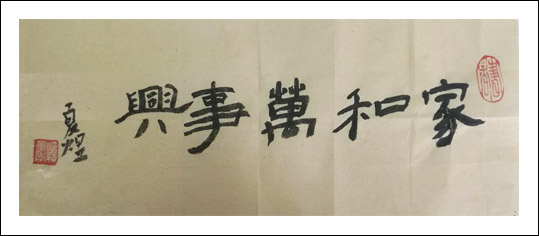 家和萬事興
夏煌